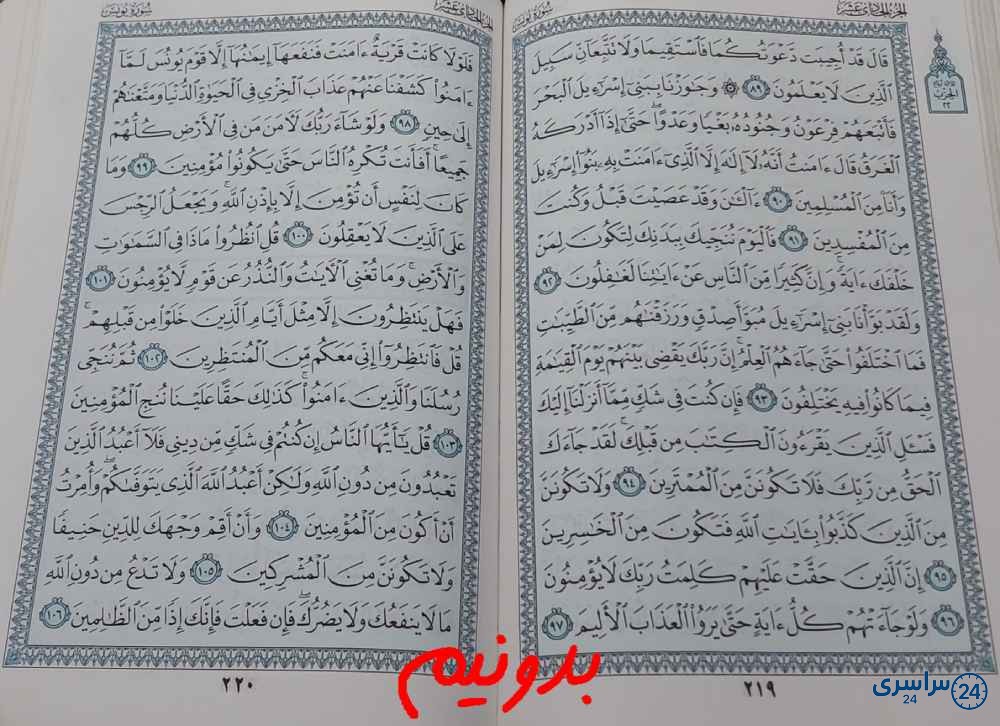 الجزء الحادي عشر
سورة يونس
قَالَ قَدْ أُجِيبَت دَّعْوَتُكُمَا فَٱسْتَقِيمَا وَلَا تَتَّبِعَآنِّ سَبِيلَ
ٱلَّذِينَ لَا يَعْلَمُونَ ٨٩ ۞ وَجَٰوَزْنَا بِبَنِىٓ إِسْرَٰٓءِيلَ ٱلْبَحْرَ
فَأَتْبَعَهُمْ فِرْعَوْنُ وَجُنُودُهُۥ بَغْيًا وَعَدْوًا ۖ حَتَّىٰٓ إِذَآ أَدْرَكَهُ
ٱلْغَرَقُ قَالَ ءَامَنتُ أَنَّهُۥ لَآ إِلَٰهَ إِلَّا ٱلَّذِىٓ ءَامَنَتْ بِهِۦ بَنُوٓا۟ إِسْرَٰٓءِيلَ
وَأَنَا۠ مِنَ ٱلْمُسْلِمِينَ ٩٠ ءَآلْـَٰٔنَ وَقَدْ عَصَيْتَ قَبْلُ وَكُنتَ
مِنَ ٱلْمُفْسِدِينَ ٩١ فَٱلْيَوْمَ نُنَجِّيكَ بِبَدَنِكَ لِتَكُونَ لِمَنْ
خَلْفَكَ ءَايَةً ۚ وَإِنَّ كَثِيرًا مِّنَ ٱلنَّاسِ عَنْ ءَايَٰتِنَا لَغَٰفِلُونَ ٩٢
وَلَقَدْ بَوَّأْنَا بَنِىٓ إِسْرَٰٓءِيلَ مُبَوَّأَ صِدْقٍ وَرَزَقْنَٰهُم مِّنَ ٱلطَّيِّبَٰتِ
فَمَا ٱخْتَلَفُوا۟ حَتَّىٰ جَآءَهُمُ ٱلْعِلْمُ ۚ إِنَّ رَبَّكَ يَقْضِى بَيْنَهُمْ يَوْمَ ٱلْقِيَٰمَةِ
فِيمَا كَانُوا۟ فِيهِ يَخْتَلِفُونَ ٩٣ فَإِن كُنتَ فِى شَكٍّ مِّمَّآ أَنزَلْنَآ إِلَيْكَ
فَسْـَٔلِ ٱلَّذِينَ يَقْرَءُونَ ٱلْكِتَٰبَ مِن قَبْلِكَ ۚ لَقَدْ جَآءَكَ
ٱلْحَقُّ مِن رَّبِّكَ فَلَا تَكُونَنَّ مِنَ ٱلْمُمْتَرِينَ ٩٤ وَلَا تَكُونَنَّ
مِنَ ٱلَّذِينَ كَذَّبُوا۟ بِـَٔايَٰتِ ٱللَّهِ فَتَكُونَ مِنَ ٱلْخَٰسِرِينَ
٩٥ إِنَّ ٱلَّذِينَ حَقَّتْ عَلَيْهِمْ كَلِمَتُ رَبِّكَ لَا يُؤْمِنُونَ
٩٦ وَلَوْ جَآءَتْهُمْ كُلُّ ءَايَةٍ حَتَّىٰ يَرَوُا۟ ٱلْعَذَابَ ٱلْأَلِيمَ ٩٧
٢١٩
الجزء الحادي عشر
سورة يونس
فَلَوْلَا كَانَتْ قَرْيَةٌ ءَامَنَتْ فَنَفَعَهَآ إِيمَٰنُهَآ إِلَّا قَوْمَ يُونُسَ لَمَّآ
ءَامَنُوا۟ كَشَفْنَا عَنْهُمْ عَذَابَ ٱلْخِزْىِ فِى ٱلْحَيَوٰةِ ٱلدُّنْيَا وَمَتَّعْنَٰهُمْ
إِلَىٰ حِينٍ ٩٨ وَلَوْ شَآءَ رَبُّكَ لَءَامَنَ مَن فِى ٱلْأَرْضِ كُلُّهُمْ
جَمِيعًا ۚ أَفَأَنتَ تُكْرِهُ ٱلنَّاسَ حَتَّىٰ يَكُونُوا۟ مُؤْمِنِينَ ٩٩ وَمَا
كَانَ لِنَفْسٍ أَن تُؤْمِنَ إِلَّا بِإِذْنِ ٱللَّهِ ۚ وَيَجْعَلُ ٱلرِّجْسَ
عَلَى ٱلَّذِينَ لَا يَعْقِلُونَ ١٠٠ قُلِ ٱنظُرُوا۟ مَاذَا فِى ٱلسَّمَٰوَٰتِ
وَٱلْأَرْضِ ۚ وَمَا تُغْنِى ٱلْءَايَٰتُ وَٱلنُّذُرُ عَن قَوْمٍ لَّا يُؤْمِنُونَ ١٠١
فَهَلْ يَنتَظِرُونَ إِلَّا مِثْلَ أَيَّامِ ٱلَّذِينَ خَلَوْا۟ مِن قَبْلِهِمْ ۚ
قُلْ فَٱنتَظِرُوٓا۟ إِنِّى مَعَكُم مِّنَ ٱلْمُنتَظِرِينَ ١٠٢ ثُمَّ نُنَجِّى
رُسُلَنَا وَٱلَّذِينَ ءَامَنُوا۟ ۚ كَذَٰلِكَ حَقًّا عَلَيْنَا نُنجِ ٱلْمُؤْمِنِينَ
١٠٣ قُلْ يَٰٓأَيُّهَا ٱلنَّاسُ إِن كُنتُمْ فِى شَكٍّ مِّن دِينِى فَلَآ أَعْبُدُ ٱلَّذِينَ
تَعْبُدُونَ مِن دُونِ ٱللَّهِ وَلَٰكِنْ أَعْبُدُ ٱللَّهَ ٱلَّذِى يَتَوَفَّىٰكُمْ ۖ وَأُمِرْتُ
أَنْ أَكُونَ مِنَ ٱلْمُؤْمِنِينَ ١٠٤ وَأَنْ أَقِمْ وَجْهَكَ لِلدِّينِ حَنِيفًا
وَلَا تَكُونَنَّ مِنَ ٱلْمُشْرِكِينَ ١٠٥ وَلَا تَدْعُ مِن دُونِ ٱللَّهِ
مَا لَا يَنفَعُكَ وَلَا يَضُرُّكَ ۖ فَإِن فَعَلْتَ فَإِنَّكَ إِذًا مِّنَ ٱلظَّٰلِمِينَ ١٠٦
٢٢٠
بدونیم
سراسری
24
24